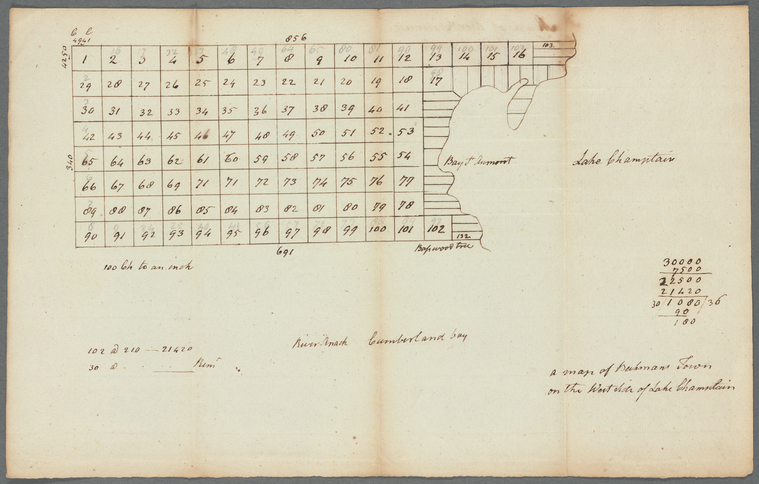 856
4941
4250
1 2 3 4 5 6 7 8 9 10 11 12 13 14 15 16 103
29 28 27 26 25 24 23 22 21 20 19 18 17
30 31 32 33 34 35 36 37 38 39 40 41
42 43 44 45 46 47 48 49 50 51 52 53
340
65 64 63 62 61 60 59 58 57 56 55 54
Bay St Aumont
Lake Champlain
66 67 68 69 71 71 72 73 74 75 76 77
89 88 87 86 85 84 83 82 81 80 79 78
90 91 92 93 94 95 96 97 98 99 100 101 102
132
691
Basswood tree
100 Ch to an inch
30000
7500
22500
21420
30/1080/36
90
180
River Cumberland bay
102 @ 210 — 21420
30 @
a map of Town
on the West side of Lake Champlain